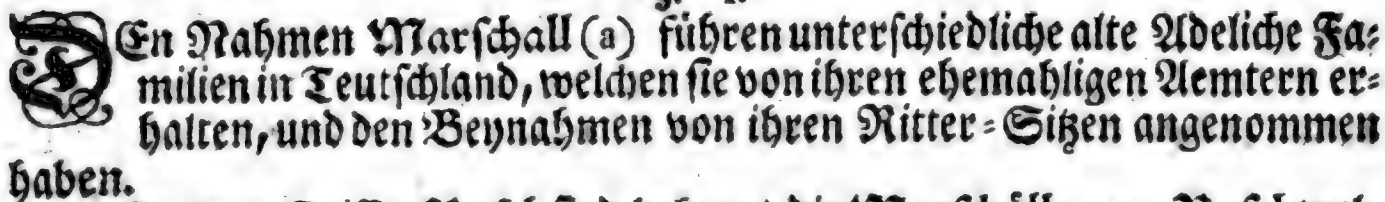 DEn Nahmen Marſchall (a) führen unterſchiedliche alte Adeliche Fa-
milien in Teutſchland, welchen ſie von ihren ehemahligen Aemtern er-
halten, und den Beynahmen von ihren Ritter-Sitzen angenommen
haben.